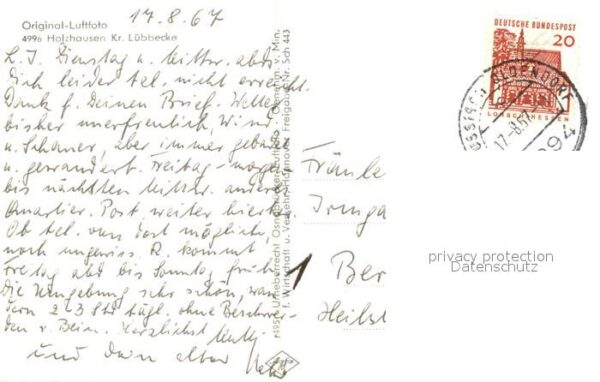 17.8.67
Original-Luftfoto
4996 Holzhausen Kr. Lübbecke
L. I. Dienstag u. Mittw. abd
Dich leider tel. nicht erreicht
Dank f. Deinen Brief. Wetter
bisher unerfreulich, Wind
u. Schauer, aber immer gebadet
u. gewandert. Freitag-morgen
bis nächsten Mittw. anderes
Quartier. Post weiter hierher.
Ob tel. von dort möglich,
noch ungewiss. R. kommt
Freitag abd bis Sonntag früh
Die Umgebung sehr schön, wan-
dern 2-3 Std tägl. ohne Beschwer-
den v. Bein. Herzlichst
und Dein alter
r4952 Urheberrecht Osnabrücker Luftbild Genehm. v. Min.
f. Wirtschaft u. Verkehr Hannover Freigabe Nr. Sch 443
Fräule
Irmga
1 Ber
Heilst
DEUTSCHE BUNDESPOST
20
LORSCH/HESSEN
OLDENDORF
17.-8.67
privacy protection
Datenschutz